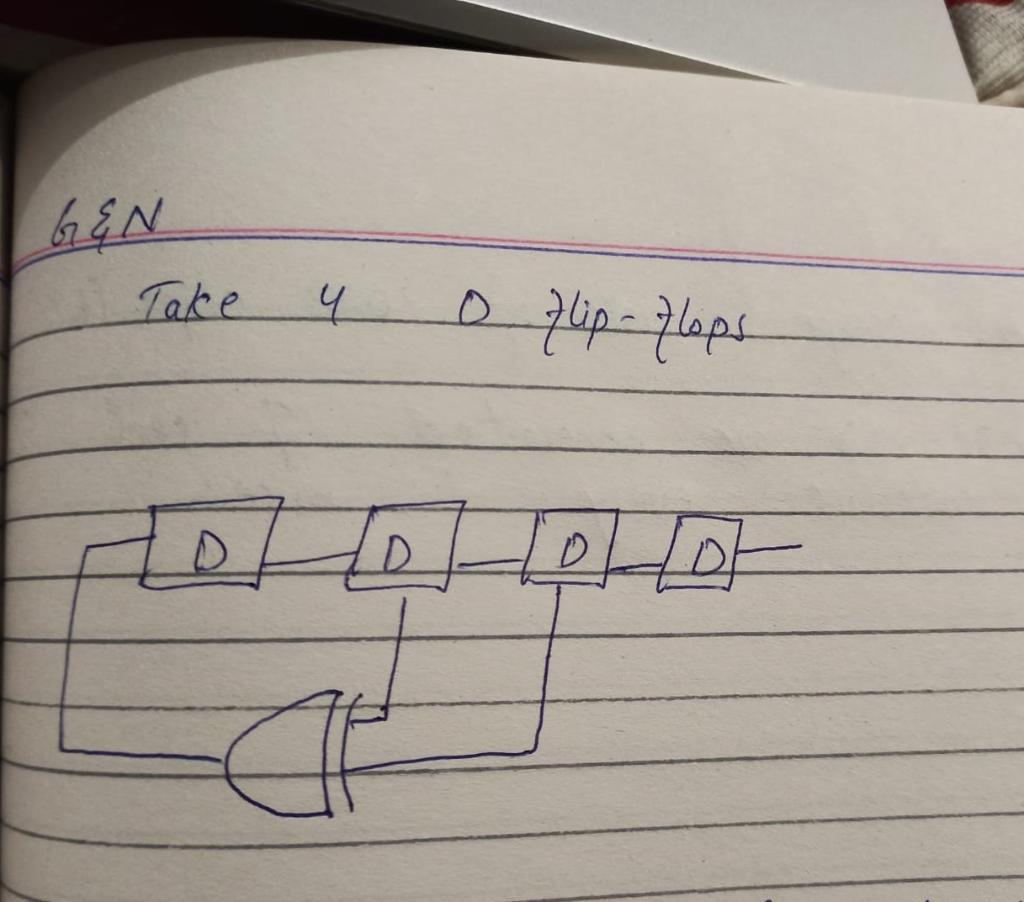 GEN
Take 4 D flip-flops
D D D D